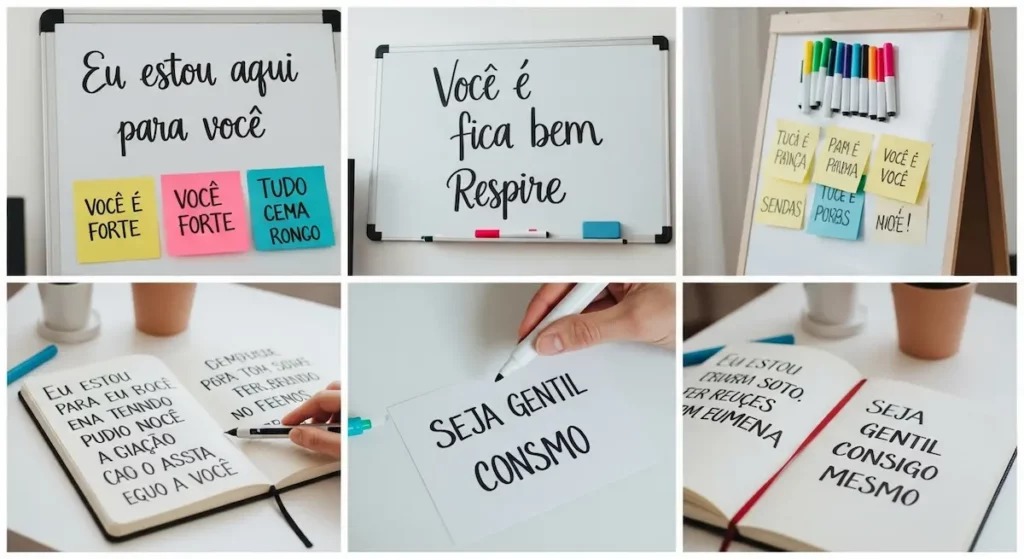 Eu estou aqui
para você
VOCÊ É
FORTE
VOCÊ
FORTE
TUDO
CEMA
RONGO
Você é
fica bem
Respire
TUCÍ É
PANÇA
PAM É
PAUMA
VOCÊ É
VOCÊ
SENDAS
TUCE É
PORBS
EU ESTOU
PARA EU BOCÊ
ENA TENNDO
PUDIO NOCÊ
A GIAÇÃO
CAO O ASSTA
EGUO A VOCÊ
POPA TOM
NO FEENOS
SEJA GENTIL
CONSMO
EU ESTOU
SOTO,
REUÇES
EUMENA
SEJA
GENTIL
CONSIGO
MESMO